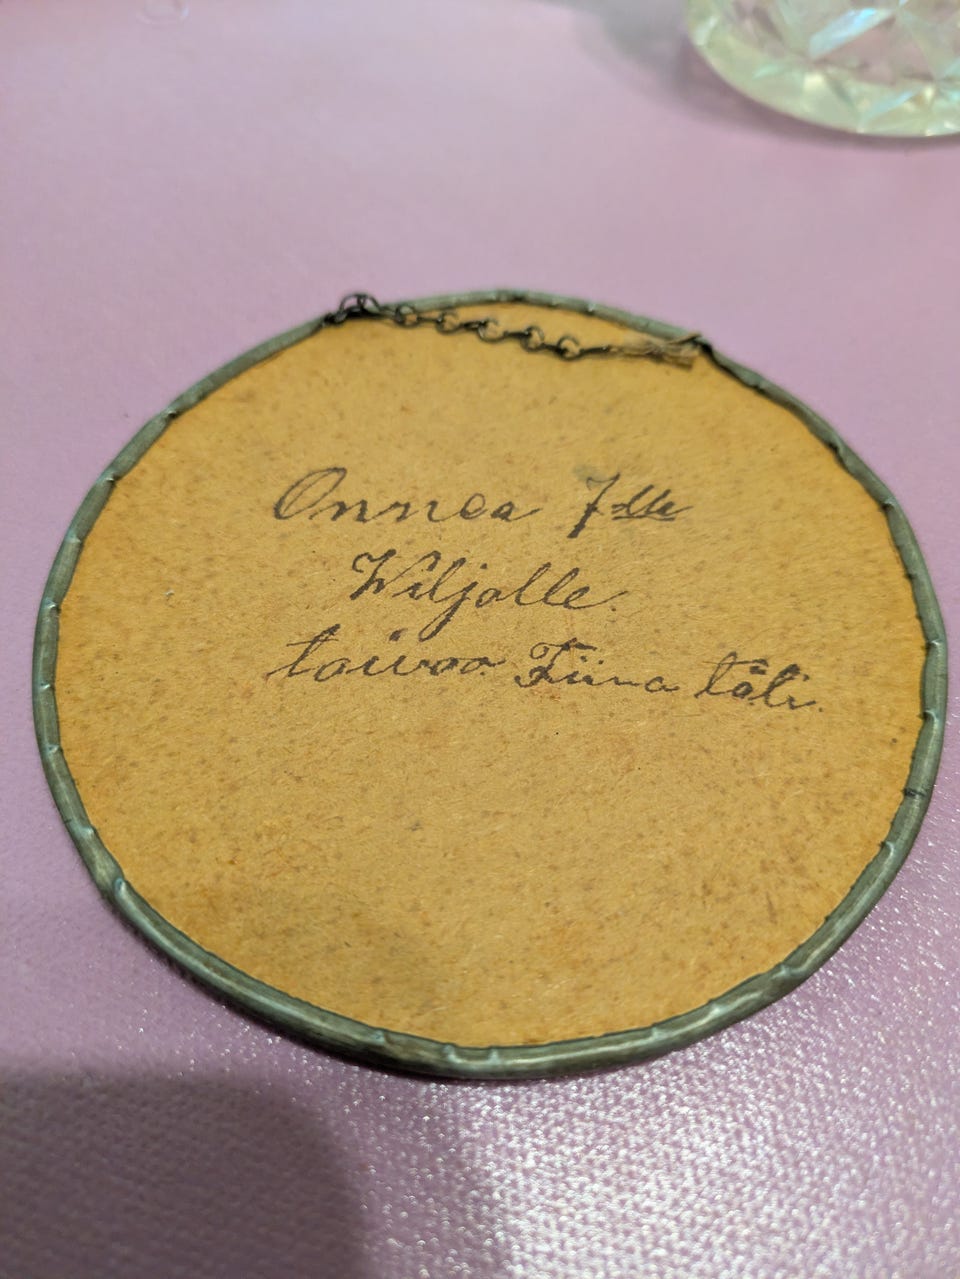 Onnea 7lle
Wiljolle.
toivoo Tiina täti.